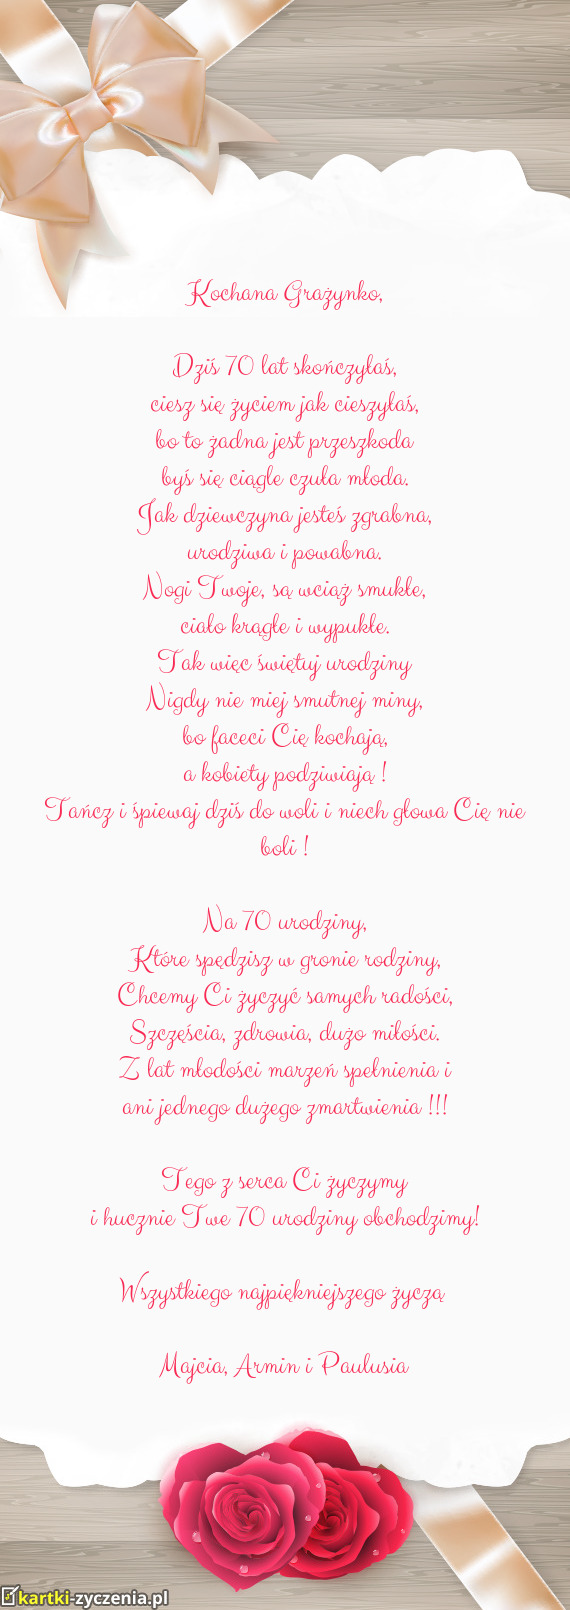 Kochana Grażynko,
Dziś 70 lat skończyłaś,
ciesz się życiem jak cieszyłaś,
bo to żadna jest przeszkoda
byś się ciągle czuła młoda.
Jak dziewczyna jesteś zgrabna,
urodziwa i powabna.
Nogi Twoje, są wciąż smukłe,
ciało krągłe i wypukłe.
Tak więc świętuj urodziny
Nigdy nie miej smutnej miny,
bo faceci Cię kochają,
a kobiety podziwiają !
Tańcz i śpiewaj dziś do woli i niech głowa Cię nie
boli !
Na 70 urodziny,
Które spędzisz w gronie rodziny,
Chcemy Ci życzyć samych radości,
Szczęścia, zdrowia, dużo miłości.
Z lat młodości marzeń spełnienia i
ani jednego dużego zmartwienia !!!
Tego z serca Ci życzymy
i hucznie Twe 70 urodziny obchodzimy!
Wszystkiego najpiękniejszego życzą
Majcia, Armin i Paulusia
kartki-zyczenia.pl